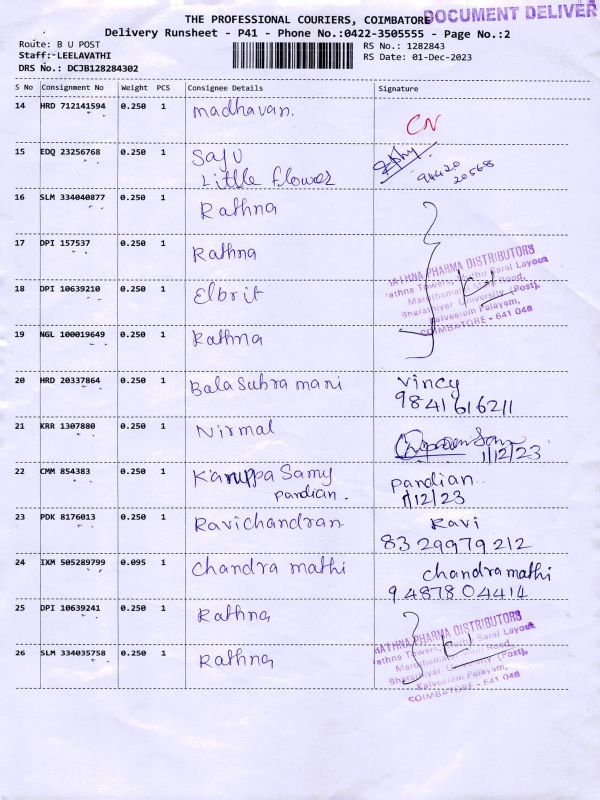 THE PROFESSIONAL COURIERS, COIMBATORE
DOCUMENT DELIVER
Delivery Runsheet - P41 - Phone No.:0422-3505555 - Page No.:2
Route: B U POST
RS No.: 1282843
Staff:-LEELAVATHI
RS Date: 01-Dec-2023
DRS No.: DCJB128284302
S No Consignment No Weight PCS Consignee Details Signature
14 HRD 712141594 0.250 1 madhavan.
CN
15 EDQ 23256768 0.250 1 Saju
Little flower
94420
20568
16 SLM 334040877 0.250 1 Rathna
17 DPI 157537 0.250 1 Rathna
RATHNA PHARMA DISTRIBUTORS
Rathna Towers, Muthu Saral Layout
Maruthamalai Road,
Bharathiyar University (Post),
Kalveeram Palayam,
COIMBATORE - 641 046
18 DPI 10639210 0.250 1 Elbrit
19 NGL 100019649 0.250 1 Rathna
20 HRD 20337864 0.250 1 Bala Subra mani Vincy
9841616211
21 KRR 1307880 0.250 1 Nirmal
1/12/23
22 CMM 854383 0.250 1 Karuppa Samy pandian
pandian. 1/12/23
23 PDK 8176013 0.250 1 Ravichandran Ravi
8329979212
24 IXM 505289799 0.095 1 Chandra mathi chandra mathi
9487804414
25 DPI 10639241 0.250 1 Rathna
RATHNA PHARMA DISTRIBUTORS
Rathna Towers, Muthu Saral Layout
Maruthamalai Road,
Bharathiyar University (Post),
Kalveeram Palayam,
COIMBATORE - 641 046
26 SLM 334035758 0.250 1 Rathna